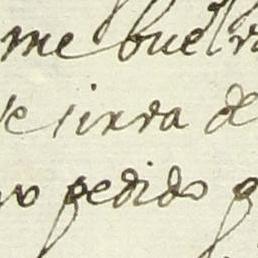 me buelva
se sirva de
pedido